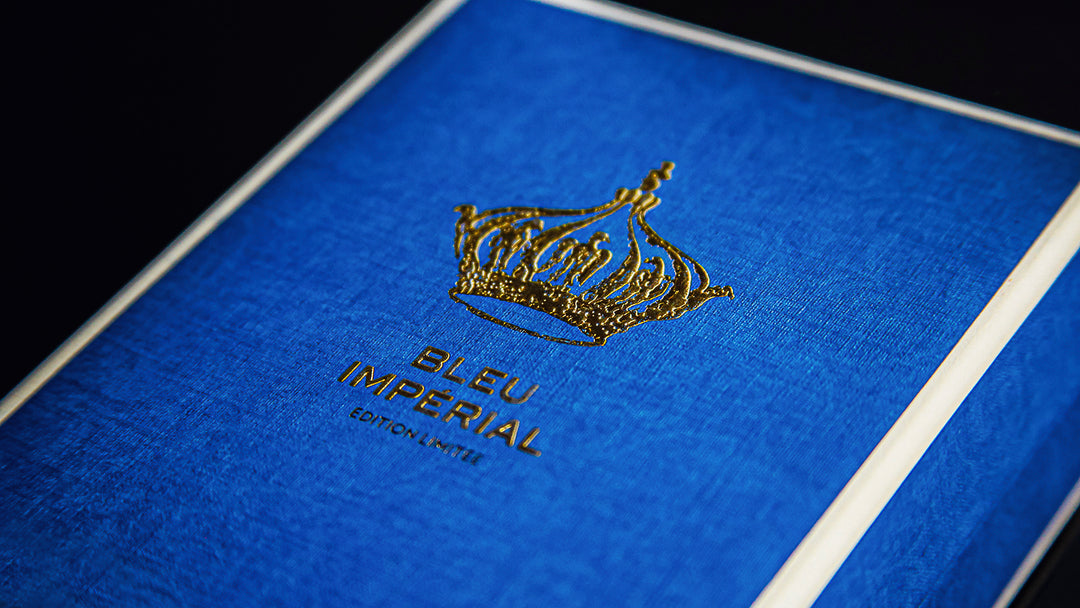 BLEU
IMPÉRIAL
ÉDITION LIMITÉE